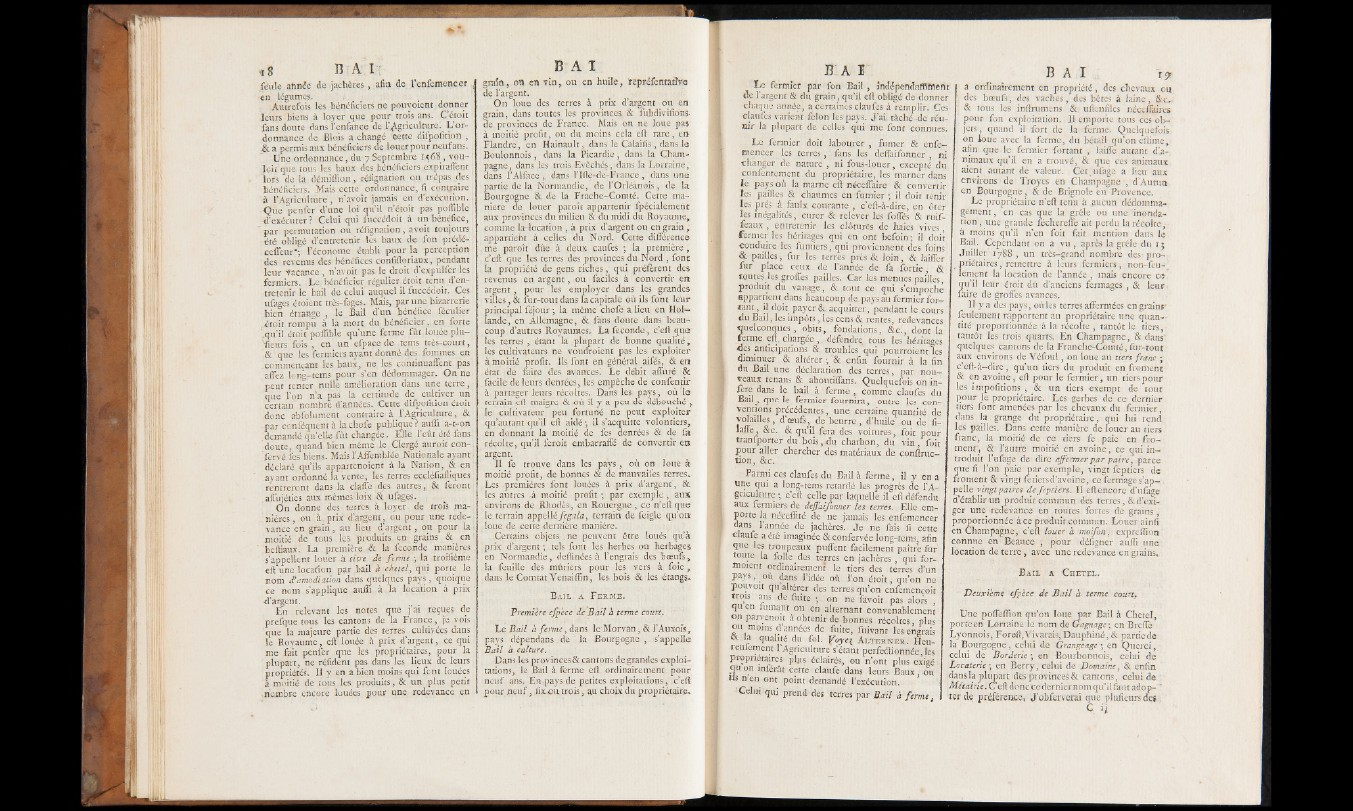 18 BAI
seule année de jachères, afin de l'ensemencer
en légumes.
Autrefois les bénéficiers ne pouvoient donner
leurs biens à loyer que pour trois ans. C'étoit
sans doute dans l'enfance de l'Agriculture. L'or-
donnance de Blois a changé cette disposition,
& a permis aux bénéficiers de louer pour neuf ans.
Une ordonnance, du 7 Septembre 1568, vou-
loit que tous les baux des bénéficiers expirassent
lors de la démission, résignation ou trépas des
bénéficiers. Mais cette ordonnance, si contraire
à l'Agriculture, n'avoit jamais eu d'exécution.
Que penser d'une loi qu'il n'étoit pas possible
d'exécuter? Celui qui succédoit à un bénéfice,
par permutation ou résignation, avoit toujours
été obligé d'entretenir les baux de son prédé-
cesseur; l'économe établi pour la perception
des revenus des bénéfices consistoriaux, pendant
leur vacance, n'avoit pas le droit d'expulser les
fermiers. Le bénéficier régulier étoit tenu d'en-
tretenir le bail de celui auquel il succédoit. Ces
usages étoient très-sages. Mais, par une bizarrerie
bien étrange, le Bail d'un bénéfice séculier
étoit rompu à la mort du bénéficier, en sorte
qu'il étoit possible qu'une ferme fût louée plu-
sieurs fois, en un espace de tems très-court,
& que les fermiers ayant donné des sommes en
commençant les baux, ne les continuassent pas
assez long-tems pour s'en dédommager. On ne
peut tenter nulle amélioration dans une terre,
que l'on n'a pas la certitude de cultiver un
certain nombre d'années. Cette disposition étoit
donc absolument contraire à l'Agriculture, &
par conséquent à la chose publique? aussi a-t-on
demandé qu'elle fût changée. Elle l'eût été sans
doute, quand bien même le Clergé auroit con-
servé ses biens. Mais l'Assemblée Nationale ayant
déclaré qu'ils appartenoient à la Nation, & en
ayant ordonné la vente, les terres ecclésiastiques
rentreront dans la classe des autres, & seront
assujéties aux mêmes loix & usages.
On donne des terres à loyer de trois ma-
nières, ou à prix d'argent, ou pour une rede-
vance en grain, au lieu d'argent, ou pour la
moitié de tous les produits en grains & en
bestiaux. La première & la seconde manières
s'appellent louer à titre de ferme, la troisième
est une location par bail à chetel, qui porte le
nom d'amodiation dans quelques pays, quoique
ce nom s'applique aussi à la location à prix
d'argent.
En relevant les notes que j'ai reçues de
presque tous les cantons de la France, je vois
que la majeure partie des terres cultivées dans
le Royaume, est louée à prix d'argent, ce qui
me fait penser que les propriétaires, pour la
plupart, ne résident pas dans les lieux de leurs
propriétés. Il y en a bien moins qui sont louées
à moitié de tous les produits, & un plus petit
nombre encore louées pour une redevance en
BAI
grain, ou en vin, ou en huile, représentative
de l'argent.
On loue des terres à prix d'argent ou en
grain, dans toutes les provinces & subdivisions
de provinces de France. Mais on ne loue pas
à moitié profit, ou du moins cela est rare, en
Flandre, en Hainault, dans le Calaisis, dans le
Boulonnois, dans la Picardie, dans la Cham-
pagne, dans les trois Evêchés, dans la Lorraine,
dans l'Alsace, dans l'Isle-de-France, dans une
partie de la Normandie, de l'Orléanois, de la
Bourgogne & de la Franche-Comté. Cette ma-
nière de louer paroît appartenir spécialement
aux provinces du milieu & du midi du Royaume,
comme la location, à prix d'argent ou en grain,
appartient à celles du Nord. Cette différence
me paroît dûe à deux causes; la première,
c'est que les terres des provinces du Nord, sont
la propriété de gens riches, qui préfèrent des
revenus en argent, ou faciles à convertir en
argent, pour les employer dans les grandes
villes, & sur-tout dans la capitale où ils font leur
principal séjour; la même chose a lieu en Hol-
lande, en Allemagne, & sans doute dans beau-
coup d'autres Royaumes. La seconde, c'est que
les terres, étant la plupart de bonne qualité,
les cultivateurs ne voudroient pas les exploiter
à moitié profit. Ils sont en général aisés, & en
état de faire des avances. Le débit assuré &
facile de leurs denrées, les empêche de consentir
à partager leurs récoltes. Dans les pays, où le
terrain est maigre & où il y a peu de débouché,
le cultivateur peu fortuné ne peut exploiter
qu'autant qu'il est aidé; il s'acquitte volontiers,
en donnant la moitié de ses denrées & de sa
récolte, qu'il seroit embarrassé de convertir en
argent.
Il se trouve dans les pays, où on loue à
moitié profit, de bonnes & de mauvaises terres.
Les premières sont louées à prix d'argent, &
les autres à moitié profit; par exemple, aux
environs de Rhodès, en Rouergue, ce n'est que
le terrain appellé segala, terrain de seigle qu'on
loue de cette dernière manière.
Certains objets ne peuvent être loués qu'à
prix d'argent; tels sont les herbes ou herbages
en Normandie, destinées à l'engrais des bœufs,
la feuille des mûriers pour les vers à soie,
dans le Comtat Venaissin, les bois & les étangs.
BAIL A FERME.
Première espèce de Bail à terme court.
Le Bail à ferme, dans le Morvan, & l'Auxois,
pays dépendans de la Bourgogne, s'appelle
Bail à culture.
Dans les provinces & cantons de grandes exploi-
tations, le Bail à ferme est ordinairement pour
neuf ans. En pays de petites exploitations, c'est
pour neuf, six ou trois, au choix du propriétaire.
BAI
Le fermier par son Bail, indépendamment
de l'argent & du grain, qu'il est obligé de donner
chaque année, a certaines clauses à remplir. Ces
clauses varient selon les pays. J'ai tâché de réu-
nir la plupart de celles qui me sont connues.
Le fermier doit labourer, fumer & ense-
mencer les terres, sans les dessaisonner, ni
changer de nature, ni sous-louer, excepté du
consentement du propriétaire, les marner dans
le pays où la marne est nécessaire & convertir
les pailles & chaumes en fumier; il doit tenir
les prés à faulx courante, c'est-à-dire, en ôter
les inégalités, curer & relever les fossés & ruis-
seaux, entretenir les clôturés de haies vives,
fermer les héritages qui en ont besoin; il doit
conduire les fumiers, qui proviennent des foins
& pailles, sur les terres près & loin, & laisser
sur place ceux de l'année de sa sortie, &
toutes les grosses pailles. Car les menues pailles,
produit du vanage, & tout ce qui s'empoche
appartient dans beaucoup de pays au fermier sor-
tant, il doit payer & acquitter, pendant le cours
du Bail, les impôts, les cens & rentes, redevances
quelconques, obits, fondations, &c., dont la
ferme est chargée, défendre tous les héritages
des anticipations & troubles qui pourroient les
diminuer & altérer; & enfin fournir à la fin
du Bail une déclaration des terres, par nou-
veaux tenans & aboutissans. Quelquefois on in-
sère dans le bail à ferme, comme clauses du
Bail, que le fermier fournira, outre les con-
ventions précédentes, une certaine quantité de
volailles, d'œufs, de beurre, d'huile ou de fi-
lasse, &c. & qu'il fera des voitures, soit pour
transporter du bois, du charbon, du vin, soit
pour aller chercher des matériaux de construc-
tion, &c.
Parmi ces clauses du Bail à ferme, il y en a
une qui a long-tems retardé les progrès de l'A-
griculture; c'est celle par laquelle il est défendu
aux fermiers de dessaisonner les terres. Elle em-
porte la nécessité de ne jamais les ensemencer
dans l'année de jachères. Je ne sais si cette
clause a été imaginée & conservée long-tems, afin
que les troupeaux pussent facilement paître sur
toute la solle des terres en jachères, qui for-
moient ordinairement le tiers des terres d'un
pays, ou dans l'idée où l'on étoit, qu'on ne
pouvoit qu'altérer des terres qu'on ensemençoit
trois ans de suite; on ne savoit pas alors,
qu'en fumant ou en alternant convenablement
on parvenoit à obtenir de bonnes récoltes, plus
ou moins d'années de suite, suivant les engrais
& la qualité du sol. Voyez ALTERNER. Heu-
reusement l'Agriculture s'étant perfectionnée, les
propriétaires plus éclairés, ou n'ont plus exigé
qu'on insérât cette clause dans leurs Baux, ou
ils n'en ont point demandé l'exécution.
Celui qui prend des terres par Bail à ferme,
BAI 19
a ordinairement en propriété, des chevaux ou
des bœufs, des vaches, des bêtes à laine, &c.
& tous les instrumens & ustensiles nécessaires
pour son exploitation. Il emporte tous ces ob-
jets, quand il sort de la ferme. Quelquefois
on loue avec la ferme, du bétail qu'on estime,
afin que le fermier sortant, laisse autant d'a-
nimaux qu'il en a trouvé, & que ces animaux
aient autant de valeur. Cet usage a lieu aux
environs de Troyes en Champagne, d'Autun
en Bourgogne, & de Brignole en Provence.
Le propriétaire n'est tenu à aucun dédomma-
gement, en cas que la grêle ou une inonda-
tion, une grande sécheresse ait perdu la récolte,
à moins qu'il n'en soit fait mention dans le
Bail. Cependant on a vu, après la grêle du 13
Juillet 1788, un très-grand nombre des pro-
priétaires, remettre à leurs fermiers, non-seu-
lement la location de l'année, mais encore ce
qu'il leur étoit dû d'anciens fermages, & leur
faire de grosses avances.
Il y a des pays, où les terres affermées en grains
seulement rapportent au propriétaire une quan-
tité proportionnée à la récolte, tantôt le tiers,
tantôt les trois quarts. En Champagne, & dans
quelques cantons de la Franche-Comté, sur-tout
aux environs de Vésoul, on loue au tiers franc;
c'est-à-dire, qu'un tiers du produit en froment
& en avoine, est pour le fermier, un tiers pour
les impositions, & un tiers exempt de tout
pour le propriétaire. Les gerbes de ce dernier
tiers sont amenées par les chevaux du fermier,
dans la grange du propriétaire, qui lui rend
les pailles. Dans cette manière de louer au tiers
franc, la moitié de ce tiers se paie en fro-
ment, & l'autre moitié en avoine, ce qui in-
troduit l'usage de dire affermer par paire, parce
que si l'on paie par exemple, vingt septiers de
froment & vingt septiers d'avoine, ce fermage s'ap-
pelle vingt paires de septiers. Il est encore d'usage
d'établir un produit commun des terres, & d'exi-
ger une redevance en toutes sortes de grains,
proportionnée à ce produit commun. Louer ainsi
en Champagne, c'est louer à moison, expression
connue en Beauce, pour désigner aussi une
location de terre, avec une redevance en grains.
BAIL A CHETEL.
Deuxième espèce de Bail à terme court.
Une possession qu'on loue par Bail à Chetel,
porte en Lorraine le nom de Gagnage; en Bresse
Lyonnois, Forest, Vivarais, Dauphiné, & partie de
la Bourgogne, celui de Grangeage; en Querci,
celui de Borderie; en Bourbonnois, celui de
Locaterie; en Berry, celui de Domaine, & enfin
dans la plupart des provinces & cantons, celui de
Métairie. C'est donc ce dernier nom qu'il faut adop-
ter de préférence. J'observerai que plusieurs des
C ij